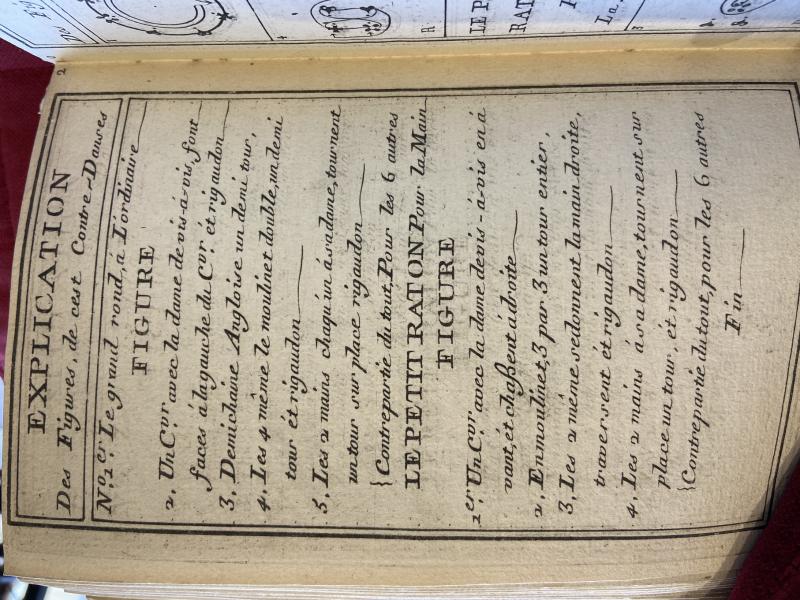 EXPLICATION
Des Figures, de cest Contre-Danses
No. 1er. Le grand rond, à L'ordinaire
FIGURE
2, Un Cor avec la dame de vis-à-vis, font
faces à la gauche du Cor. et rigaudon
3, Demi chaine Angloise un demi tour,
4, Les 4 même le moulinet double, un demi
tour et rigaudon
5, Les 2 mains chaqu'un à sa dame, tournent
un tour sur place rigaudon
{Contrepartie du tout, Pour les 6 autres
LE PETIT RATON Pour la Main
FIGURE
1er. Un Cor. avec la dame de vis-à-vis en à
vant, et chaßent à droite
2, En moulinet, 3 par 3 un tour entier,
3, Les 2 même se donnent la main droite,
traversent et rigaudon
4, Les 2 mains à sa dame, tournent sur
place un tour, et rigaudon
{Contrepartie du tout, pour les 6 autres
Fin
2
LE P
RAT
La
R
4
3